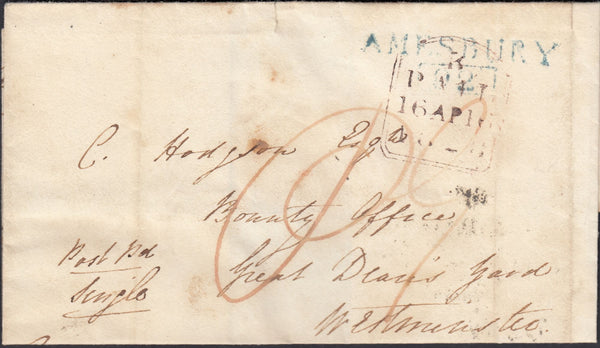 AMESBURY
16 AP 16
C. Hodgson Esqr
Bounty Office
Great Dean's Yard
Westminster
Post Pd
Single